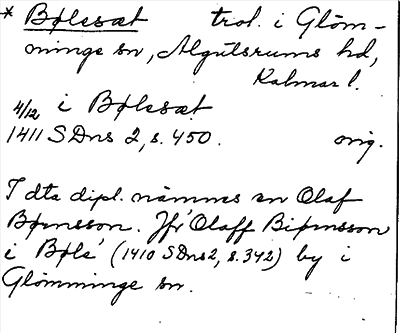 * Bølesæt trol. i Glöm-
minge sn, Algutsrums hd,
Kalmar l.
4/12 i Bølesæt
1411 SDns 2, s. 450. orig.
I dta dipl. nämnes en Olaf
Børnsson. Jfr 'Olaff Biørnsson
i Bøle' (1410 SDns2, s. 342) by i
Glömminge sn.